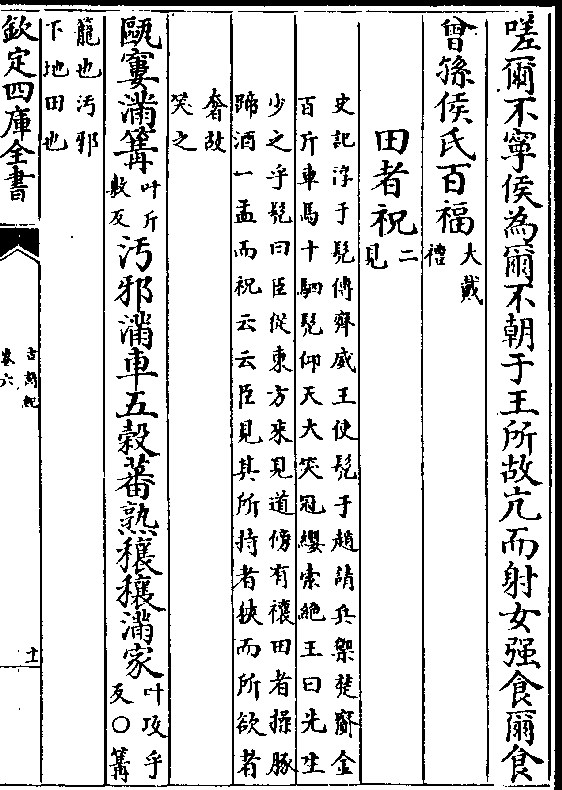 嗟爾不寧侯為爾不朝于王所故亢而射女强食爾食
曾孫侯氏百福大戴禮
田者祝二見
史記淳于髡傳齊威王使髡于趙請兵禦楚齎金
百斤車馬十駟髡仰天大笑冠纓索絶王曰先生
少之乎髡曰臣從東方來見道傍有禳田者操豚
蹄酒一盂而祝云云臣見其所持者狹而所欲者
奢故
笑之
甌窶滿篝叶斤敷反汚邪滿車五穀蕃熟穰穰滿家叶攻乎反○篝
籠也汚邪
下地田也
欽定四庫全書
古詩紀
卷六
十一